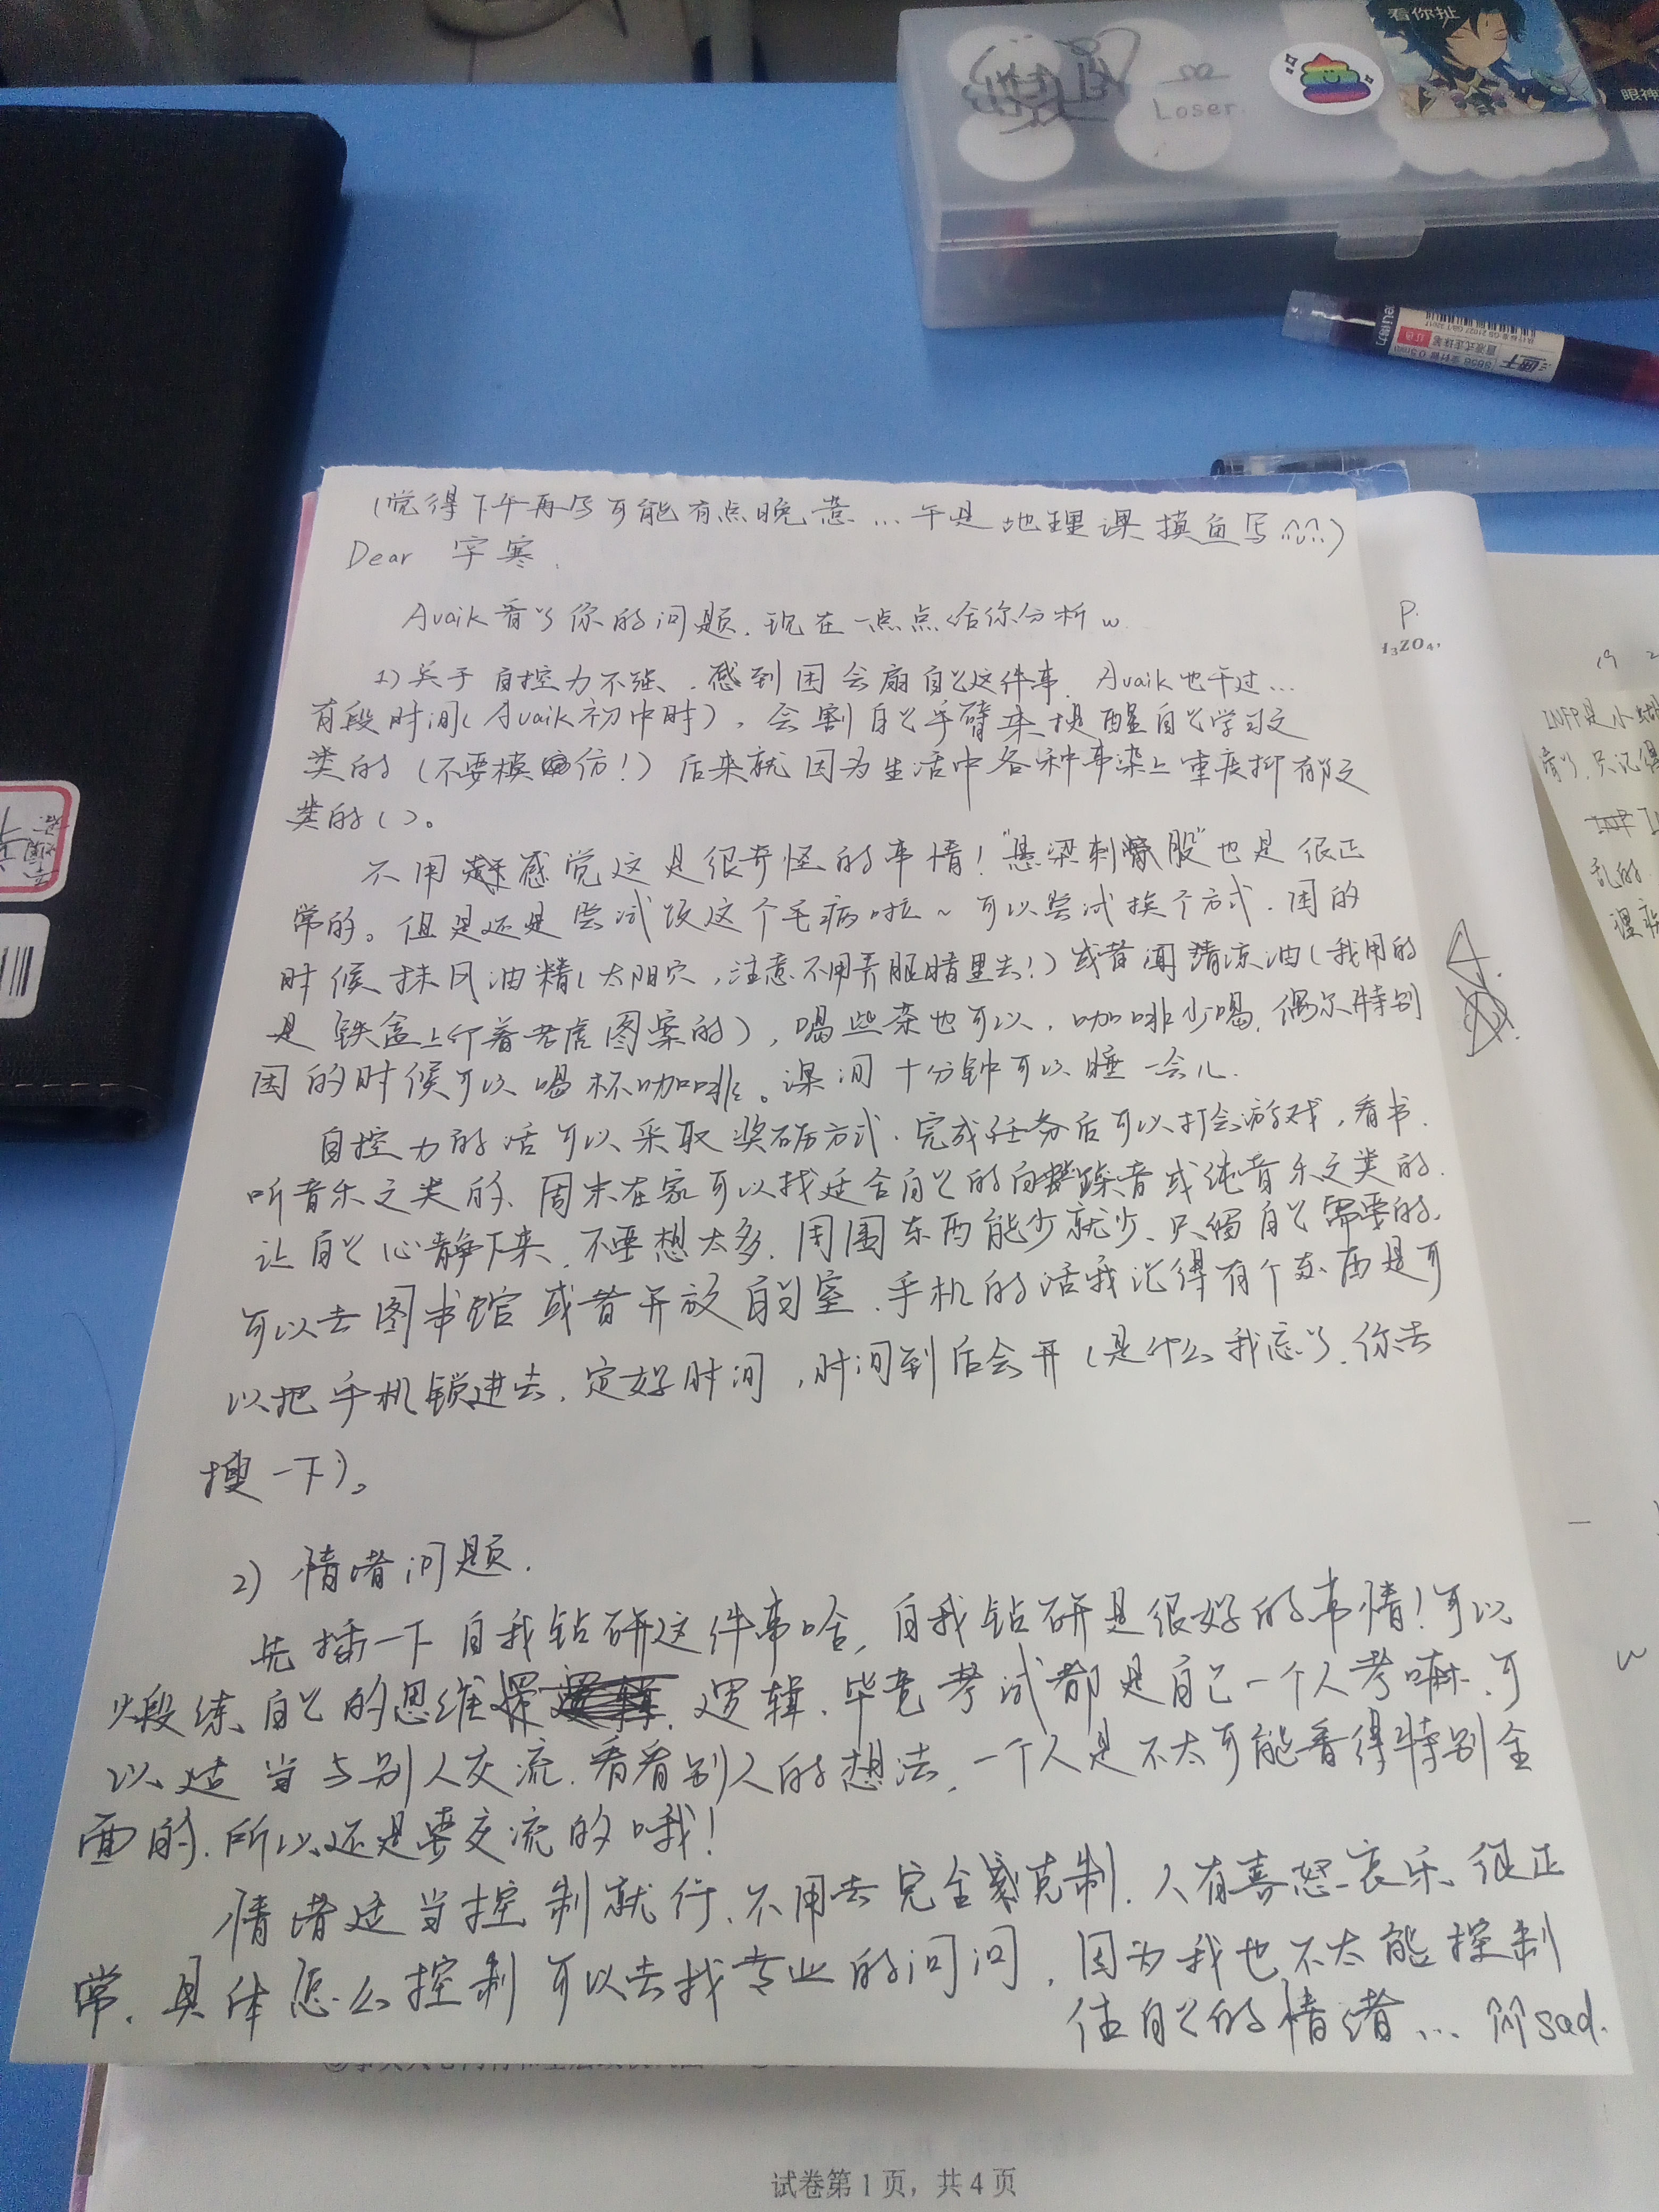 看你扯
Loser.
眼神
(觉得下午再写可能有点晚惹…于是地理课摸鱼写∩∪∩)
Dear 宇寒.
Avaik看了你的问题.现在一点点给你分析w.
1)关于自控力不强、感到困会扇自己这件事.Avaik也干过…
有段时间(Avaik初中时),会割自己手臂来提醒自己学习之
类的(不要模仿!)后来就因为生活中各种事染上重度抑郁之
类的()。
不用感觉这是很奇怪的事情!"悬梁刺股"也是很正
常的。但是还是尝试改这个毛病啦~可以尝试换个方式.困的
时候抹风油精(太阳穴,注意不用弄眼睛里去!)或者闻清凉油(我用的
是铁盒上印着老虎图案的),喝些茶也可以,咖啡少喝.偶尔特别
困的时候可以喝杯咖啡。课间十分钟可以睡一会儿.
自控力的话可以采取奖励方式.完成任务后可以打会游戏,看书.
听音乐之类的、周末在家可以找适合自己的白噪音或纯音乐之类的.
让自己心静下来.不要想太多.周围东西能少就少、只留自己需要的.
可以去图书馆或者开放自习室.手机的话我记得有个东西是可
以把手机锁进去.定好时间,时间到后会开(是什么我忘了.你去
搜一下)。
2)情绪问题.
先插一下自我钻研这件事哈,自我钻研是很好的事情!可以
锻练自己的思维逻辑.毕竟考试都是自己一个人考嘛.可
以适当与别人交流.看看别人的想法,一个人是不太可能看得特别全
面的.所以还是要交流的哦!
情绪适当控制就行、不用去完全克制.人有喜怒哀乐、很正
常.具体怎么控制可以去找专业的问问,因为我也不太能控制
住自己的情绪… sad.
P.
INFP是小蝴
清了.只记得
乱的
w
试卷第1页，共4页